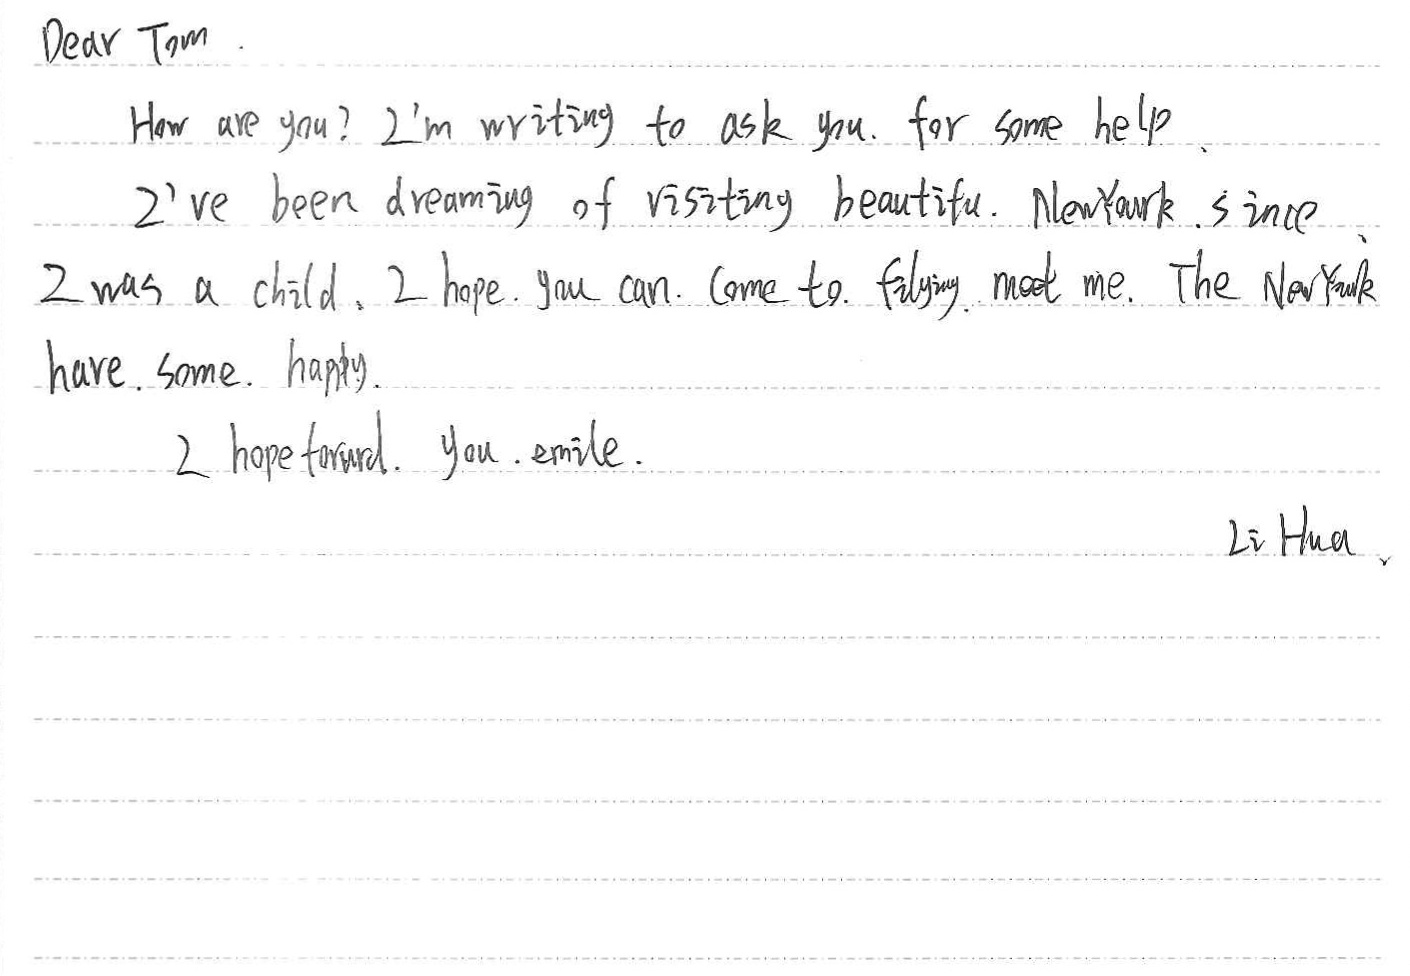 Dear Tom.
How are you? I'm writing to ask you. for some help.
I've been dreaming of visiting beautifu. NewYourk. since
I was a child. I hope. you can. Come to. filying. meet me. The NewYourk
have. some. happy.
I hope forurd. you. emile.
Li Hua.